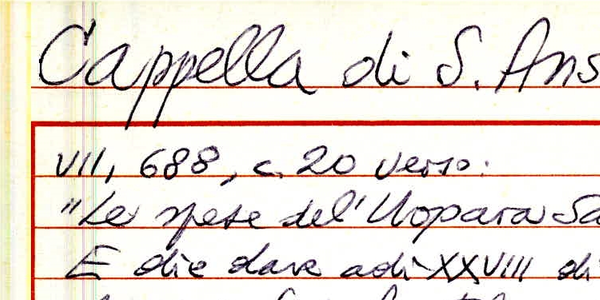 Cappella di S. Ans
VII, 688, c. 20 verso:
"Le spese del'Uopara Sa
E die dare adi XXVIII di